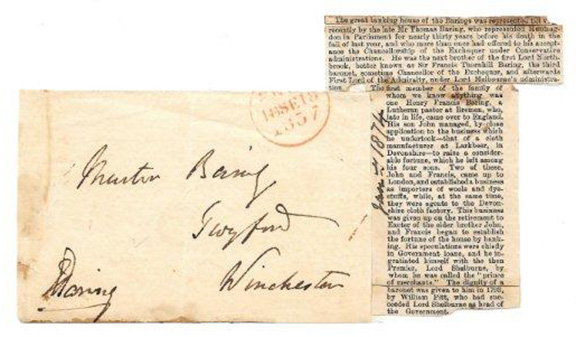 The great banking house of the Barings was represented till
recently by the late Mr Thomas Baring, who represented Hunting-
don in Parliament for nearly thirty years before his death in the
fall of last year, and who more than once had offered to his accept-
ance the Chancellorship of the Exchequer under Conservative
administrations. He was the next brother of the first Lord North-
brook, better known as Sir Francis Thornhill Baring, the third
baronet, sometime Chancellor of the Exchequer, and afterwards
First Lord of the Admiralty, under Lord Melbourne's administra-
tion. The first member of the family of
whom we know anything was
one Henry Francis Baring, a
Lutheran pastor at Bremen, who,
late in life, came over to England.
His son John managed, by close
application to the business which
he undertook—that of a cloth
manufacturer at Larkbear, in
Devonshire—to raise a consider-
able fortune, which he left among
his four sons. Two of them,
John and Francis, came up to
London, and established a business
as importers of wools and dye-
stuffs, while, at the same time,
they were agents to the Devon-
shire cloth factory. This business
was given up on the retirement to
Exeter of the elder brother John,
and Francis began to establish
the fortune of the house by bank-
ing. His speculations were chiefly
in Government loans, and he in-
gratiated himself with the then
Premier, Lord Shelburne, by
whom he was called the "prince
of merchants." The dignity of a
baronet was given to him in 1793,
by William Pitt, who had suc-
ceeded Lord Shelbourne as head of
the Government.
1874
1837
Baring
Twyford
Winchester
Baring